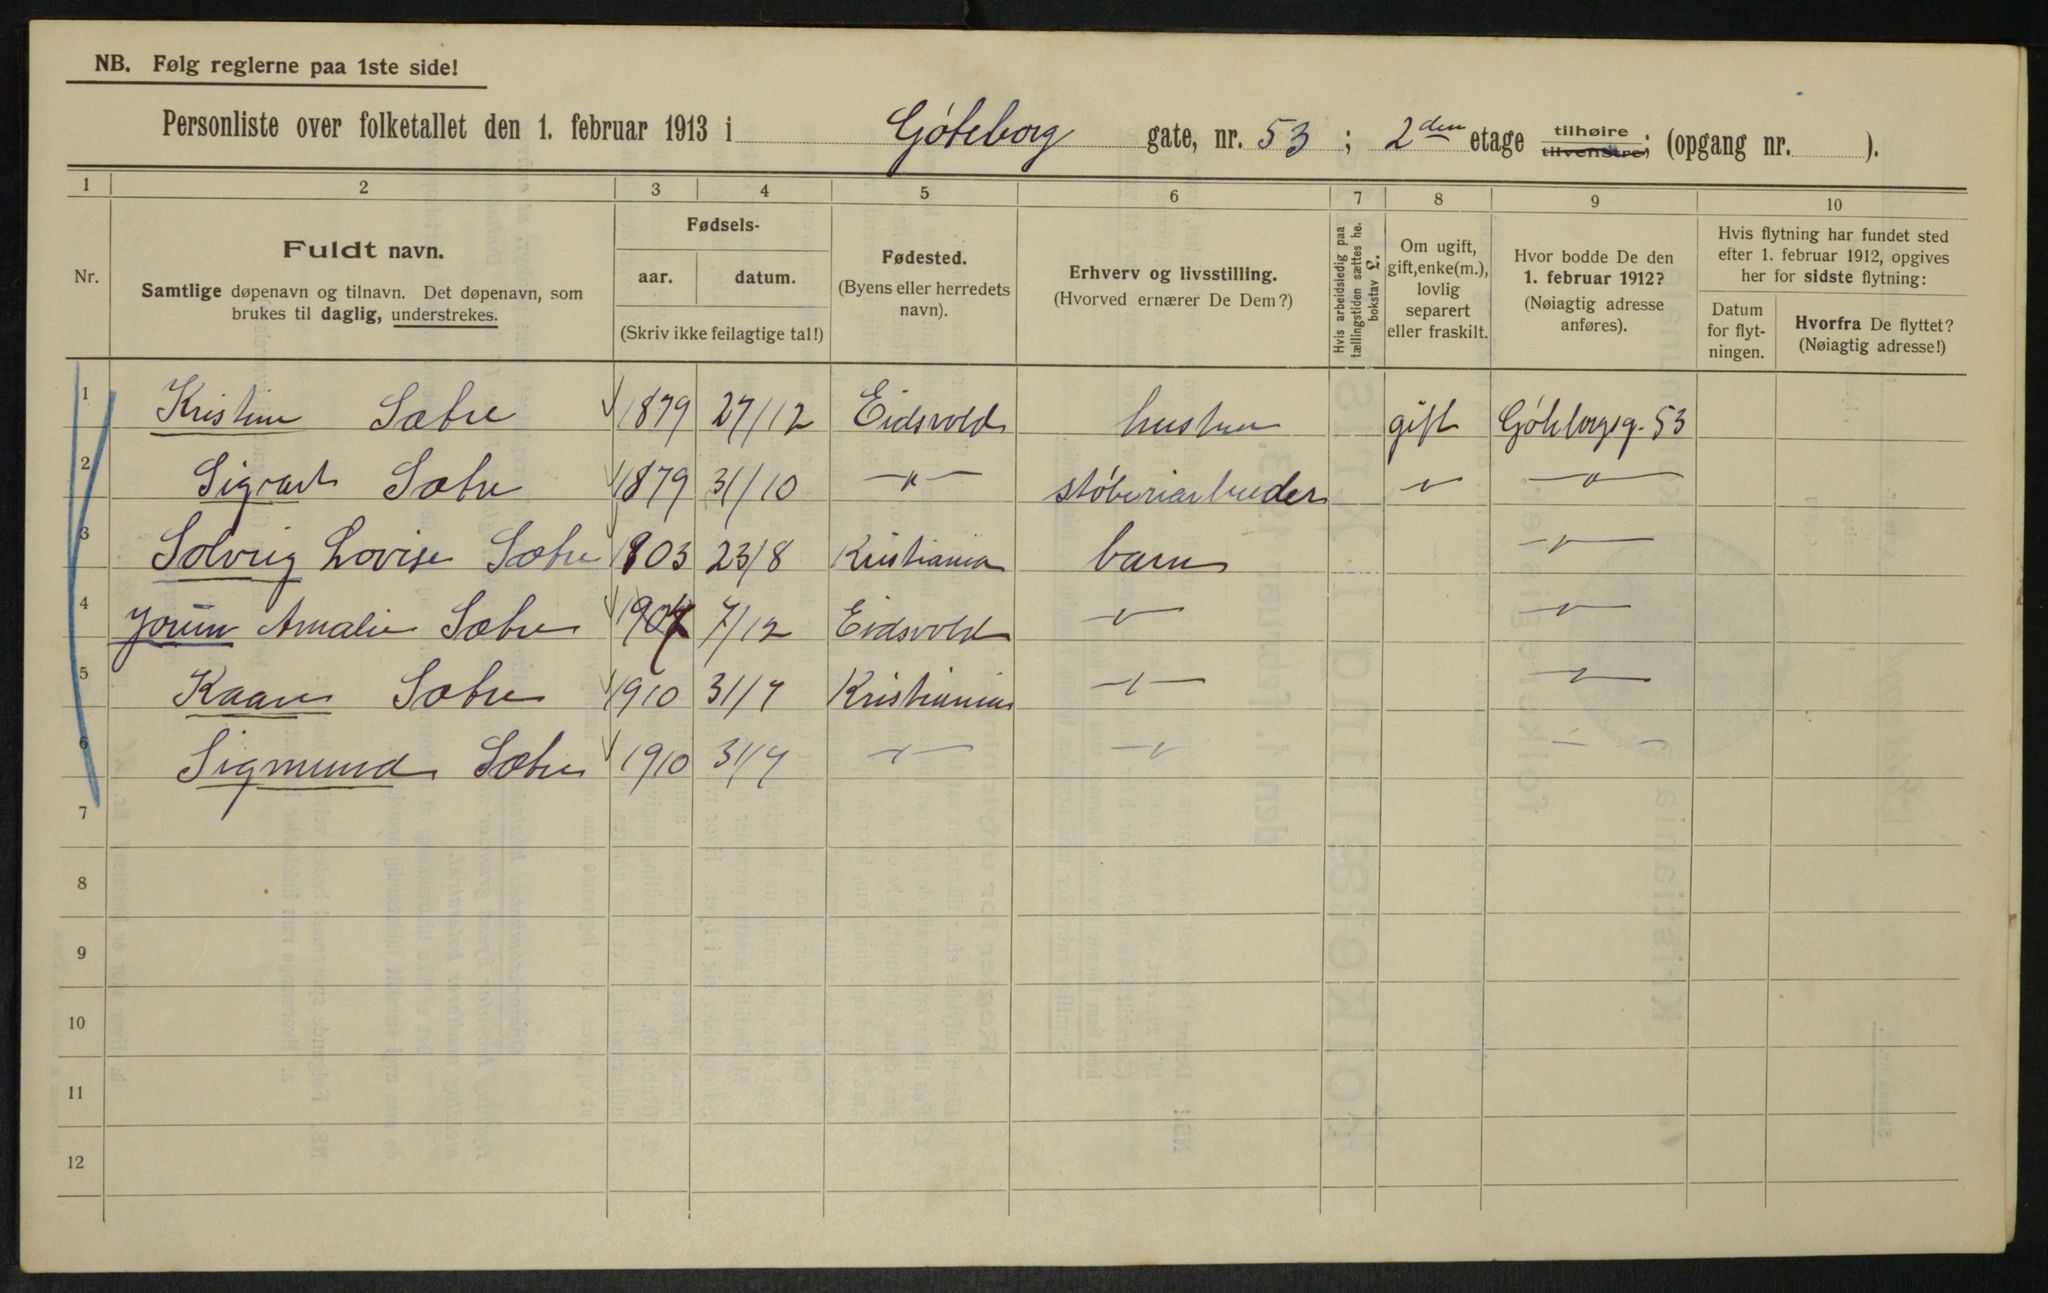 NB. Følg reglerne paa 1ste side!
Personliste over folketallet den 1. februar 1913 i Göteborg gate, nr. 53 ; 2den etage tilhøire tilvenstre; (opgang nr. ).
1 2 3 4 5 6 7 8 9 10
Nr.
Fuldt navn.
Samtlige døpenavn og tilnavn. Det døpenavn, som
brukes til daglig, understrekes.
Fødsels-
aar. datum.
(Skriv ikke feilagtige tal!)
Fødested.
(Byens eller herredets
navn).
Erhverv og livsstilling.
(Hvorved ernærer De Dem?)
Hvis arbeidsledig paa
tællingstiden sættes he.
bokstav L.
Om ugift,
gift, enke(m.),
lovlig
separert
eller fraskilt.
Hvor bodde De den
1. februar 1912?
(Nøiagtig adresse
anføres).
Hvis flytning har fundet sted
efter 1. februar 1912, opgives
her for sidste flytning:
Datum
for flyt-
ningen.
Hvorfra De flyttet?
(Nøiagtig adresse!)
1 Kristine Sæbre 1879 27/12 Eidsvold hustru gift Göteborgsg. 53
2 Sigvart Sæbre 1879 31/10 —〃— støberiarbeider 〃 —〃—
3 Solveig Lovise Sæbre 1903 23/8 Kristiania barn —〃—
4 Jorun Amalie Sæbre 1907 7/12 Eidsvold —〃— —〃—
5 Kaare Sæbre 1910 31/7 Kristiania —〃— —〃—
6 Sigmund Sæbre 1910 31/7 —〃— —〃— — 〃
7
8
9
10
11
12